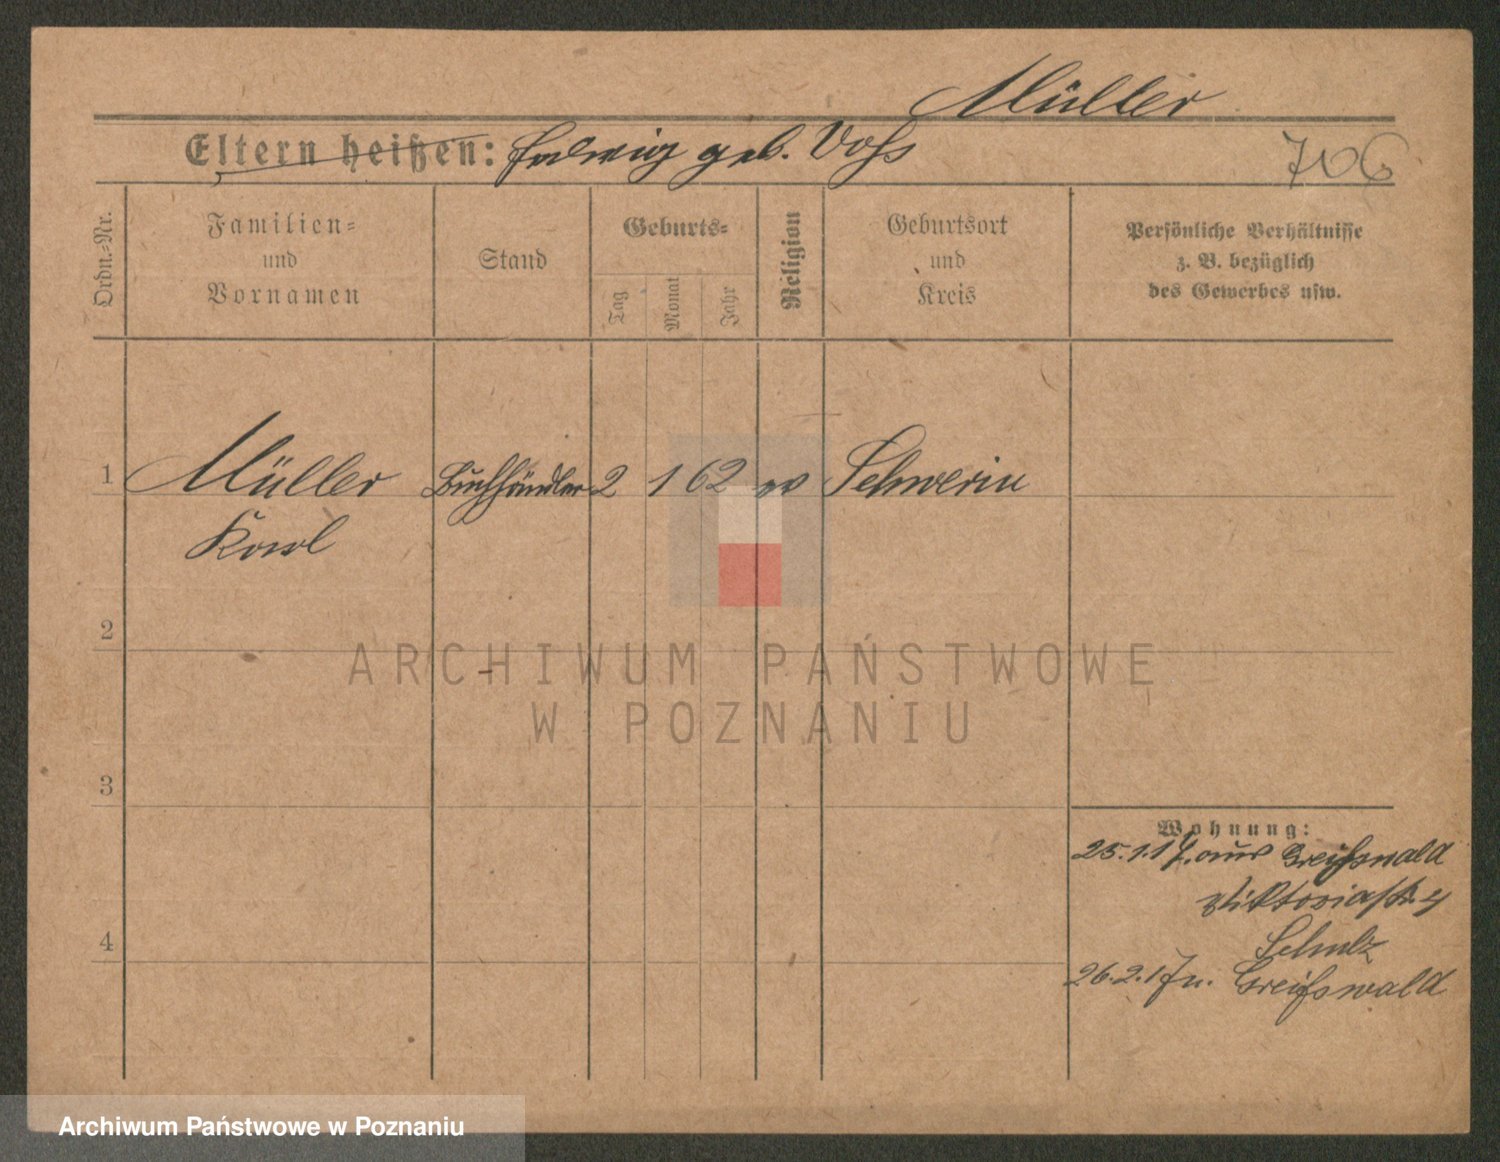 Müller
Eltern heißen: Ludwig geb. Voß
706
Ordn.-Nr.
Familien-
und
Vornamen
Stand
Geburts-
Tag
Monat
Jahr
Religion
Geburtsort
und
Kreis
Persönliche Verhältnisse
z. B. bezüglich
des Gewerbes usw.
1 Müller Buchhändler 2 1 62 ev Schwerin
Karl
2
ARCHIWUM PAŃSTWOWE
W POZNANIU
3
Wohnung:
25.1.17. aus Greifswald
Viktoriastr. 4
Schulz
4
26.2.17 n. Greifswald
Archiwum Państwowe w Poznaniu